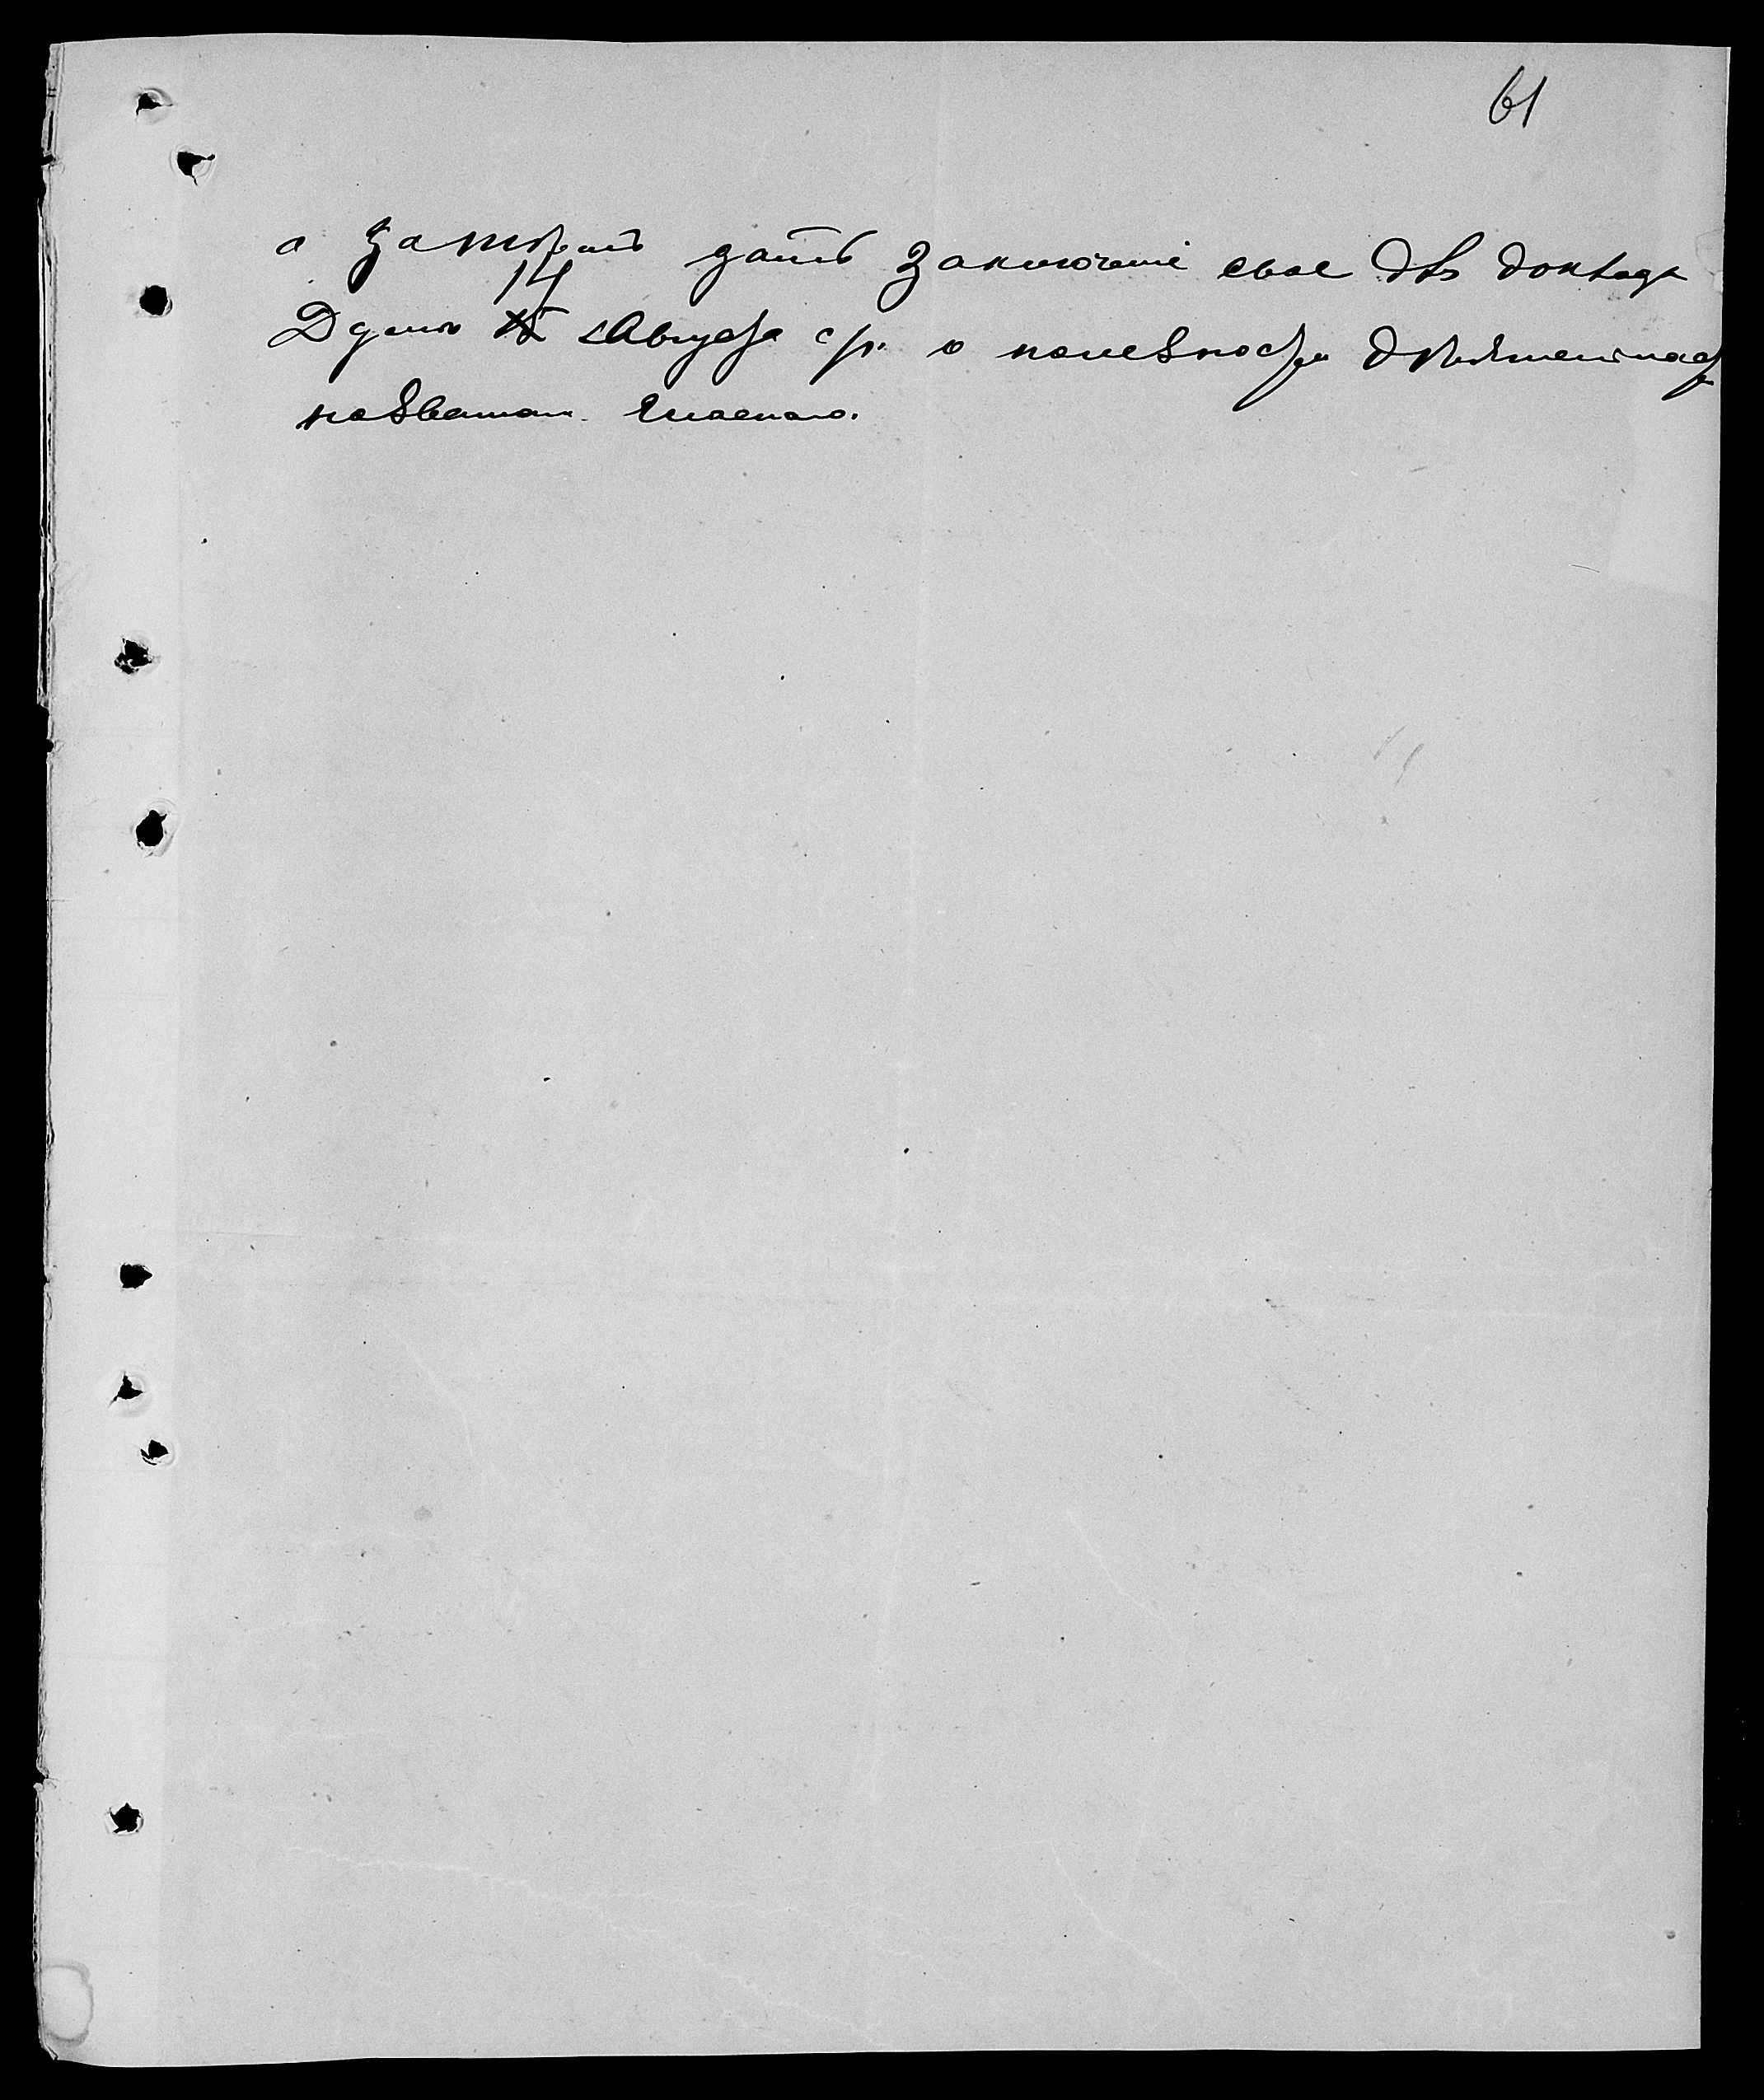 61
а затѣмъ дать заключеніе свое для доклада
Думѣ 14 Августа с/г. о полезности дѣятельности
названнаго